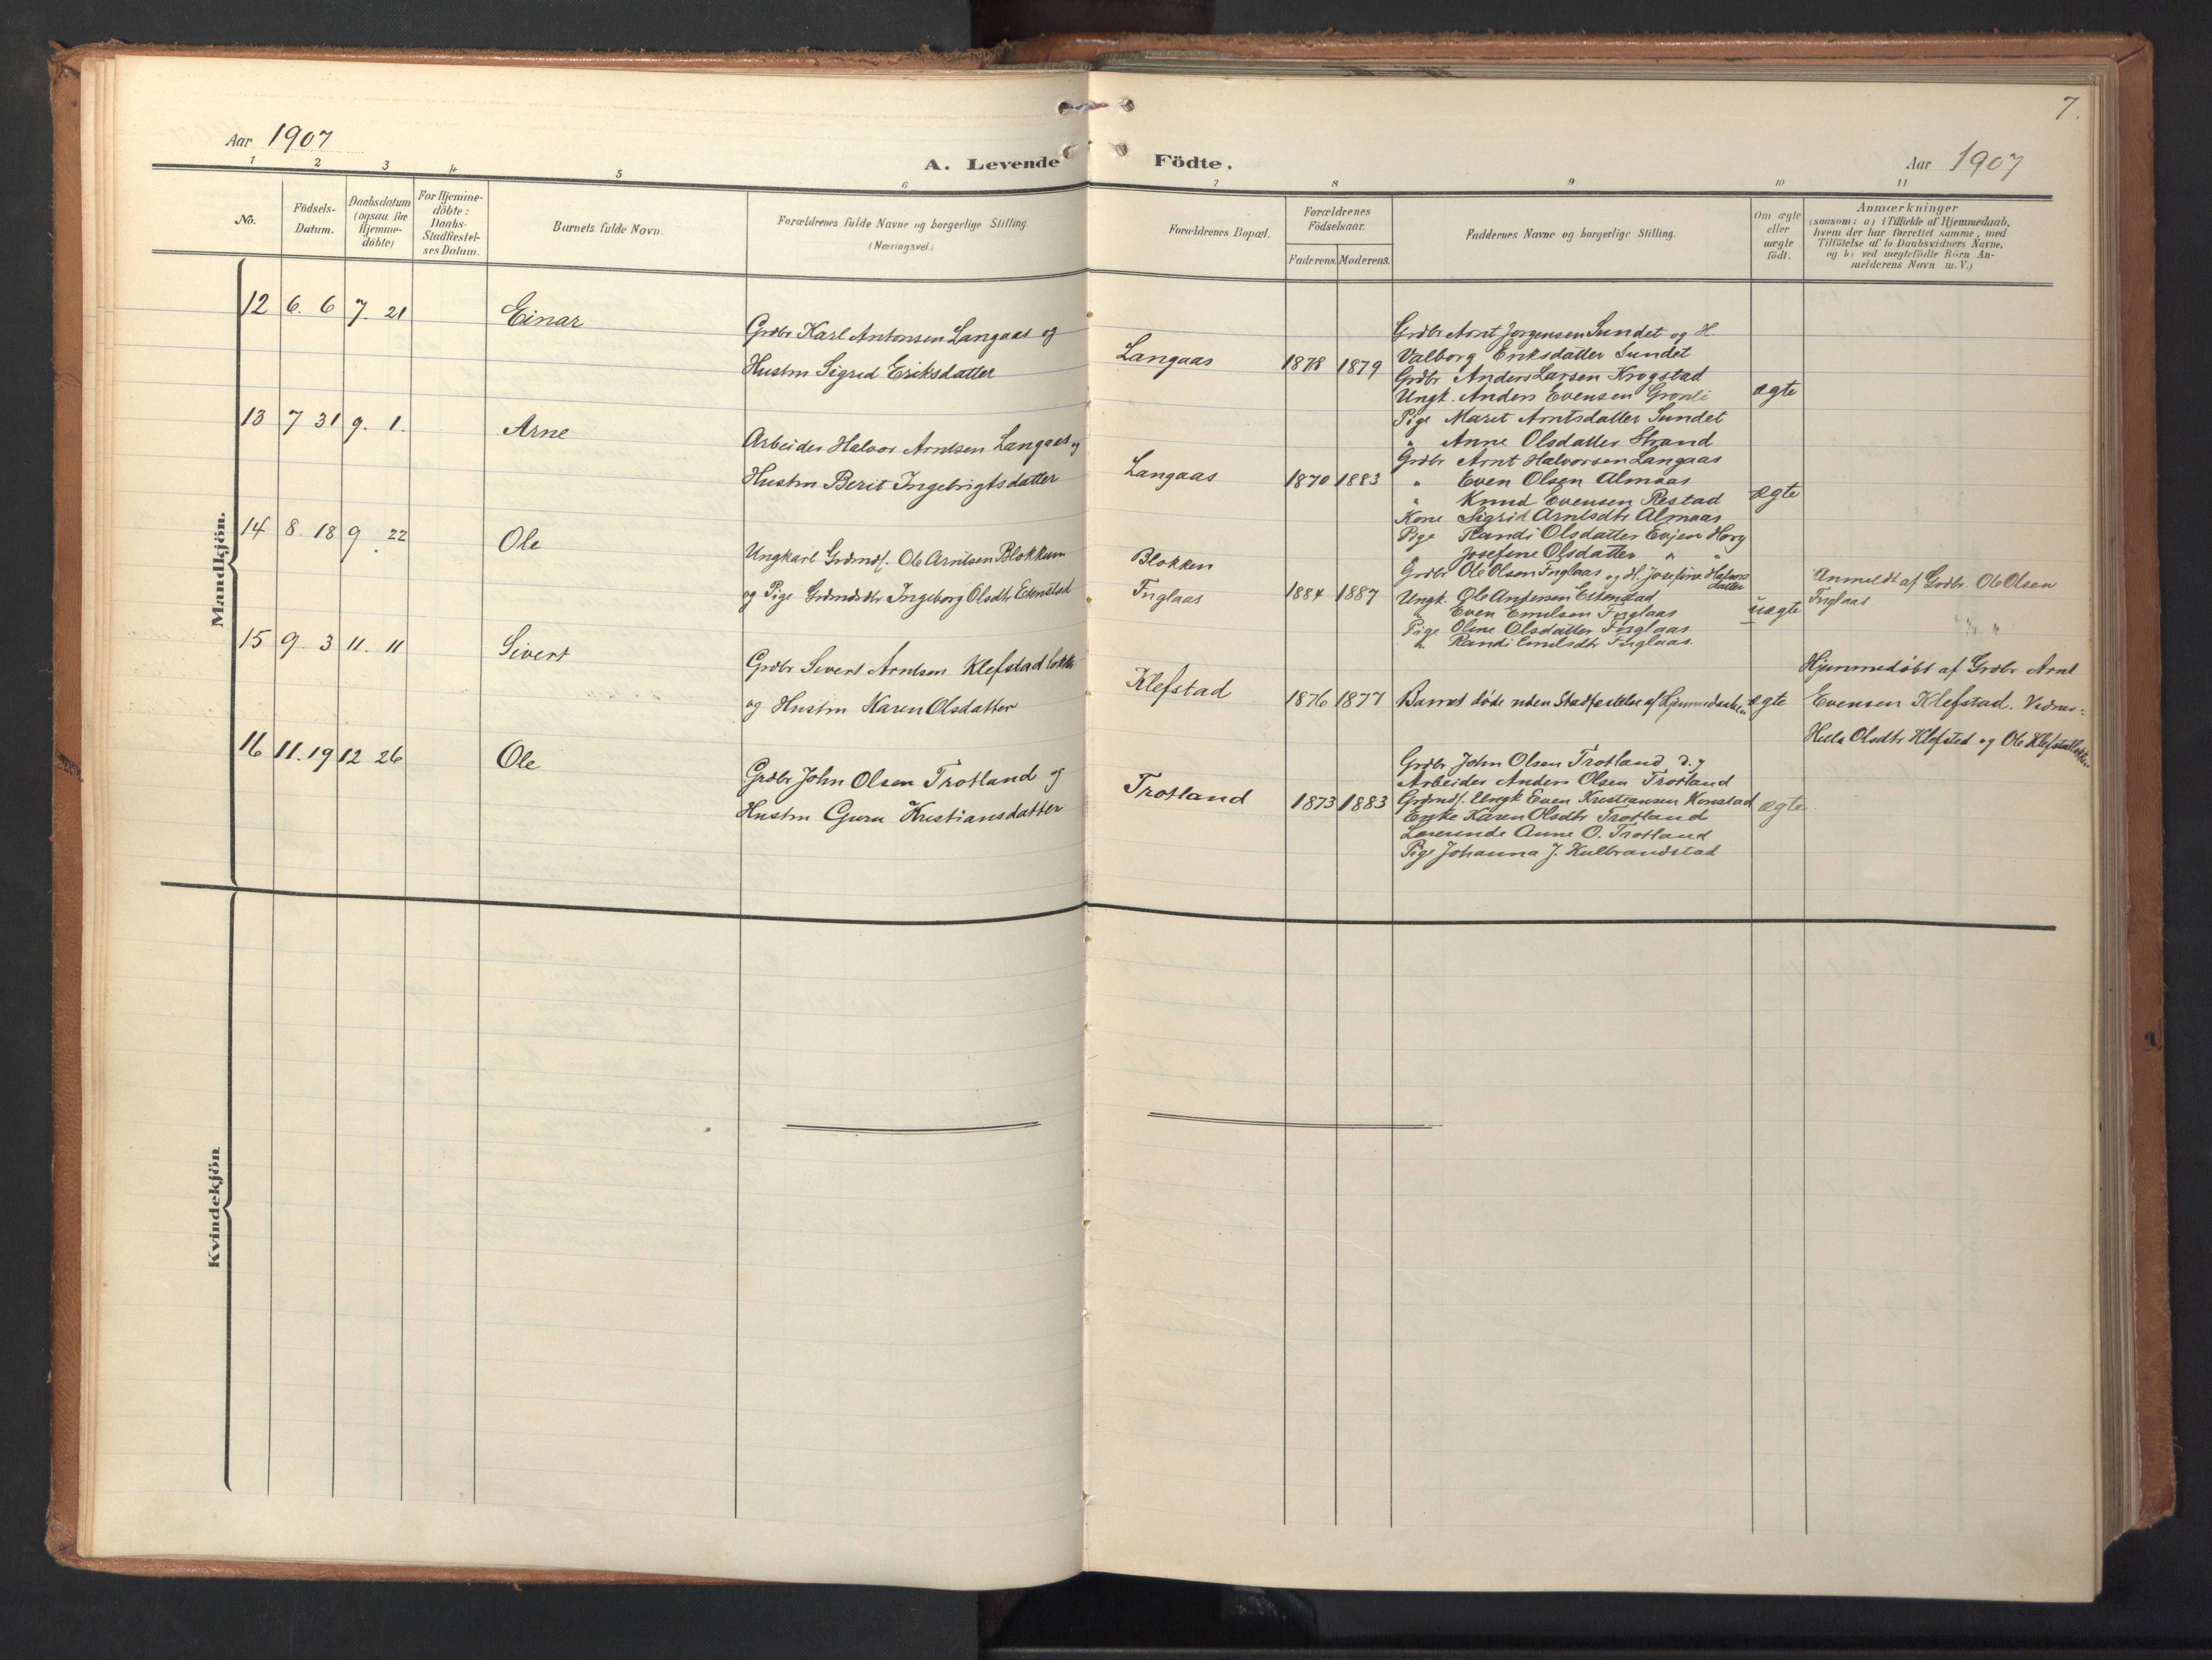 7.
Aar 1907
A. Levende Födte.
Aar 1907
1 2 3 4 5 6 7 8 9 10 11
No.
Födsels-
Datum.
Daabsdatum
(ogsaa for
Hjemme-
döbte)
For Hjemme-
döbte:
Daabs-
Stadfestel-
ses Datum.
Barnets fulde Navn.
Forældrenes fulde Navne og borgerlige Stilling.
(Næringsvei.)
Forældrenes Bopæl.
Forældrenes
Födselsaar.
Faderens. Moderens.
Faddernes Navne og borgerlige Stilling.
Om ægte
eller
uægte
födt.
Anmærkninger
(saasom: a) i Tilfælde af Hjemmedaab,
hvem der har forrettet samme, med
Tilföielse af to Daabsvidners Navne,
og b) ved uægtefödte Börn An-
melderens Navn m.V.)
Mandkjön.
12 6. 6 7. 21 Einar
Grdbr Karl Antonsen Langaas og
Hustru Sigrid Eriksdatter
Langaas 1878 1879
Grdbr Arnt Jørgensen Sundet og H.
Valborg Eriksdatter Sundet
Grdbr Anders Larsen Krogstad
Ungk. Anders Evensen Grønli
Pige Marit Arntsdatter Sundet
" Anne Olsdatter Strand
ægte
13 7 31 9. 1. Arne
Arbeider Halvor Arntsen Langaas og
Hustru Berit Ingebrigtsdatter
Langaas 1870 1883
Grdbr Arnt Halvorsen Langaas
" Even Olsen Almaas
" Knud Evensen Restad
Kone Sigrid Arntsdtr Almaas
Pige Randi Olsdatter Evjen Horg
" Josefine Olsdatter " "
ægte
14 8. 18 9. 22 Ole
Ungkarl Grdmdsf. Ole Arntsen Blokkum
og Pige Grdmdsdtr Ingeborg Olsdtr Estenstad
Blokken
Fuglaas
1884 1887
Grdbr Ole Olsen Fuglaas og H. Josefine Halvors
datter
Ungk. Ole Andersen Estenstad
" Even Emilsen Fuglaas
Pige Oline Olsdatter Fuglaas
" Randi Emilsdtr Fuglaas.
uægte
Anmeldt af Grdbr. Ole Olsen
Fuglaas
15 9. 3 11. 11 Sivert
Grdbr Sivert Arntsen Klefstadløkk
og Hustru Karen Olsdatter
Klefstad 1876 1877
Barnet døde uden Stadfestelse af Hjemmedaaben
ægte
Hjemmedøbt af Grdbr Arnt
Evensen Klefstad. Vidner:
Olsdtr Klefstad og Ole Klefstadløkken
16 11. 19 12 26 Ole
Grdbr John Olsen Trotland og
Hustru Guru Kristiansdatter
Trotland 1873 1883
Grdbr John Olsen Trotland d.y
Arbeider Anders Olsen Trotland
Grdmdsf. Ungk Even Kristiansen Konstad
Enke Karen Olsdtr Trotland
Lærerinde Anne O. Trotland
Pige Johanna J. Hulbrandstad
ægte.
Kvindekjön